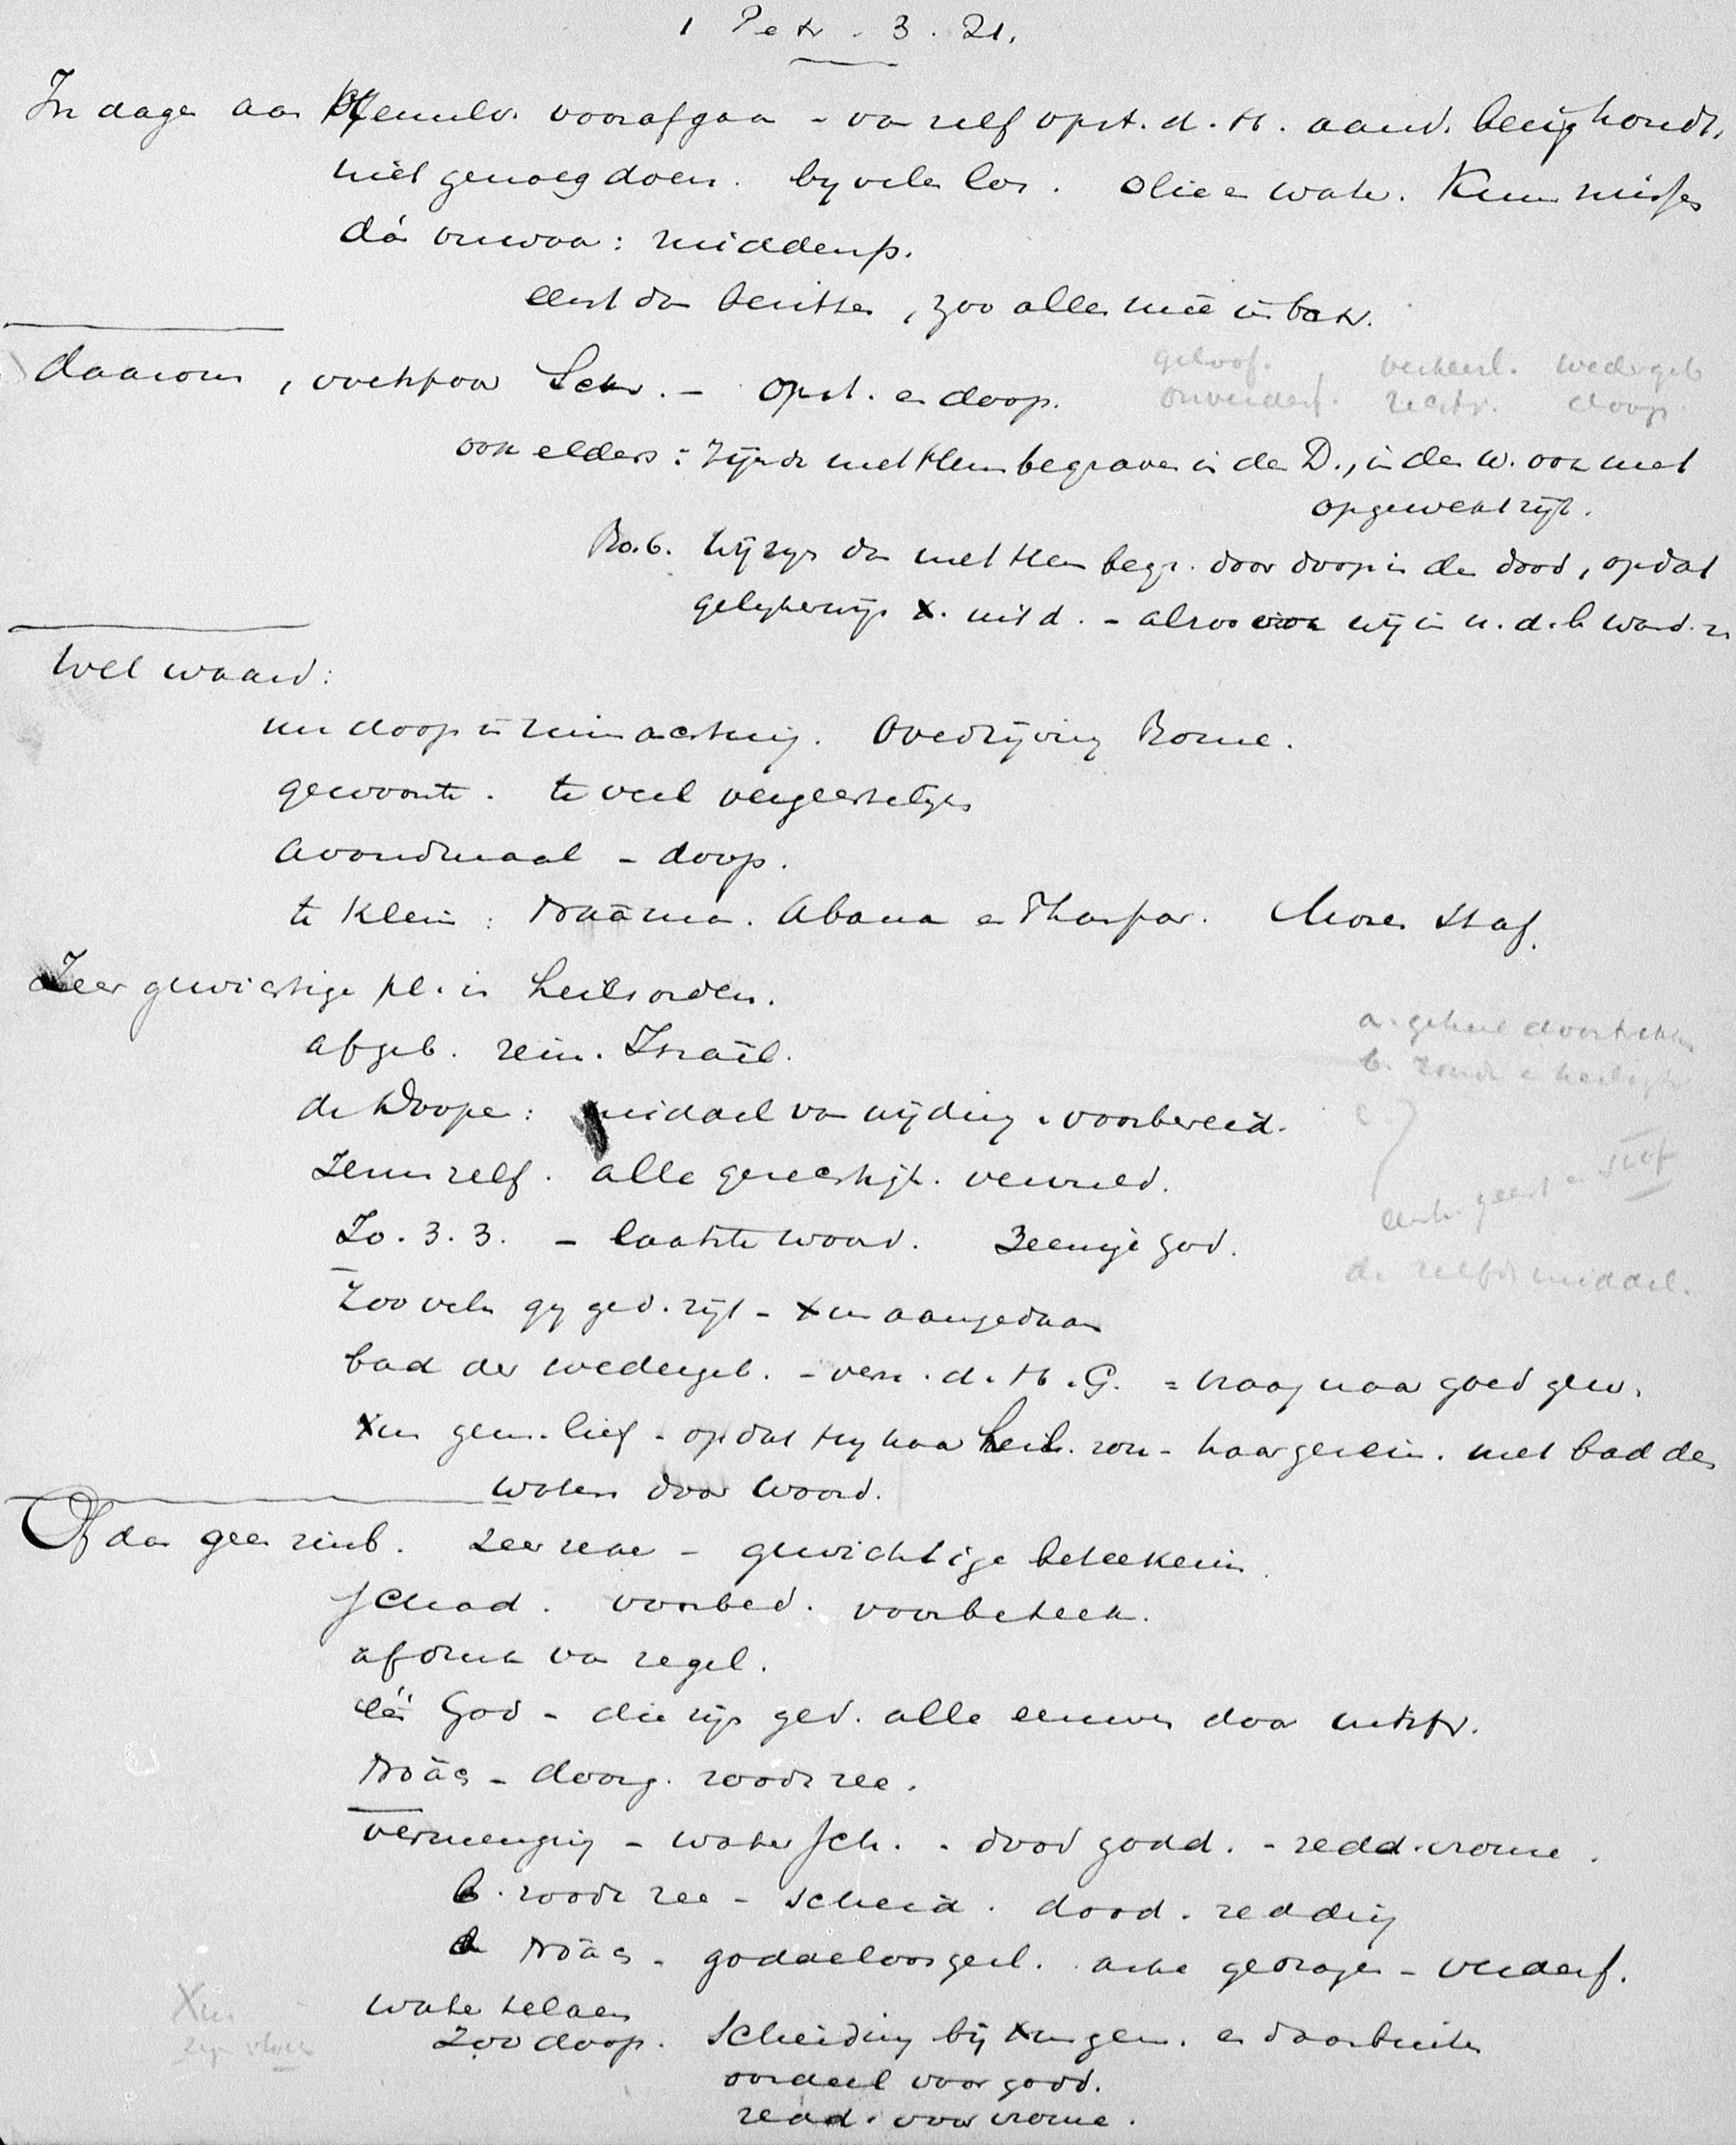 1 Petr. 3. 21.
In dagen aan Hemelv. voorafgaan - van zelf opst. d. H. aand. bezighoudt.
niet genoeg doen. by velen los. olie en water. Kunn missen
dán onwaar: middenp.
eerst dan bezitten, zoo alles mee in
daarom, Schr. - Opst. en doop.
geloof. verheerl. wedergeb
onverderf. rechtv. doop.
ook elders: zijnde met Hem begraven in den D., in den w. ook met
opgewekt zijt.
Ro. 6. Wij zijn dan met Hem begr. door doop in den dood, opdat
gelijkerwijs X. uit d. - alzoo ook wij in n. d. l. wand. zn
Wel waard:
nu doop in minachting. Overdrijving Rome.
gewoonte. te veel vergeestelijken
Avondmaal - doop.
te klein: Naäman. Abana en Pharpar. Mozes staf.
Zeer gewichtige pl. in heilsorden.
afgeb. rein. Israël.
de Dooper: middel van wijding. voorbereid.
Jezus zelf. alle gerechtigh. vervuld.
Jo. 3. 3. - laatste woord. 3eenige God.
Zoovelen gy ged. zijt - Xus aangedaan
bad der wedergeb. - vern. d. H. G. = vraag naar goed gew.
Xus gem. lief - opdat Hy haar heil. zou - haar gerein. met bad des
waters door woord.
a. geheel doortrekken
b. zonde en heiligh
c.
geest en stof
de zelfde middel.
Of dan geen zinb. Zeer zeker - gewichtige beteekenis.
schad. voorbed. voorbeteek.
afdruk van zegel.
één God - die zijn ged. alle eeuwen door uitspr.
Noäch - doorg. roode zee.
vermenging - water sch. - dood godd. - redd. vrome.
b. roode zee - scheid. dood. redding
a Noäch - goddeloos gesl. arke gedragen - verderf.
water
zoo doop. Scheiding bij Xus gem. en daarbuiten
oordeel voor godd.
redd. voor vrome.
Xus
zijn vloek